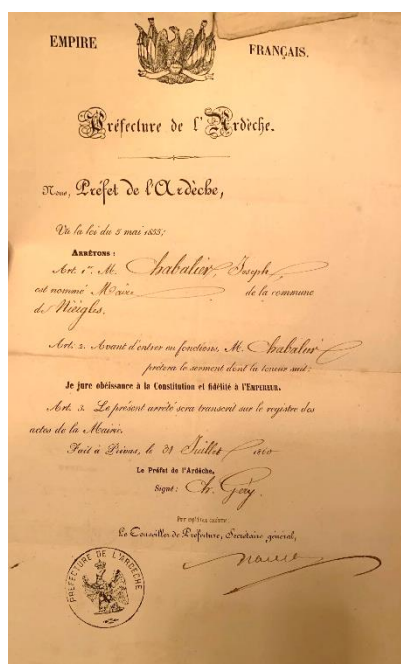 EMPIRE FRANÇAIS.
Préfecture de l'Ardèche.
Nous, Préfet de l'Ardèche,
Vu la loi du 5 mai 1855;
ARRÊTONS :
Art. 1er. M. Chabalier, Joseph,
est nommé Maire de la commune
de Nieigles.
Art. 2. Avant d'entrer en fonctions, M. Chabalier
prêtera le serment dont la teneur suit:
Je jure obéissance à la Constitution et fidélité à l'EMPEREUR.
Art. 3. Le présent arrêté sera transcrit sur le registre des
actes de la Mairie.
Fait à Privas, le 31 Juillet 1860
Le Préfet de l'Ardèche,
Signé: Ch. Géry.
Pour expédition conforme:
Le Conseiller de Préfecture, Secrétaire général,
PRÉFECTURE DE L'ARDÈCHE